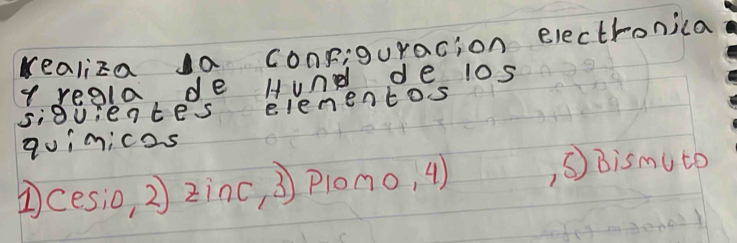 realiza la configuracion electronica
y regla de Hund de los
siguientes elementos
quimicos
1) Cesio, 2) zinc, 3) Plomo, 4) , 5) Bismuto